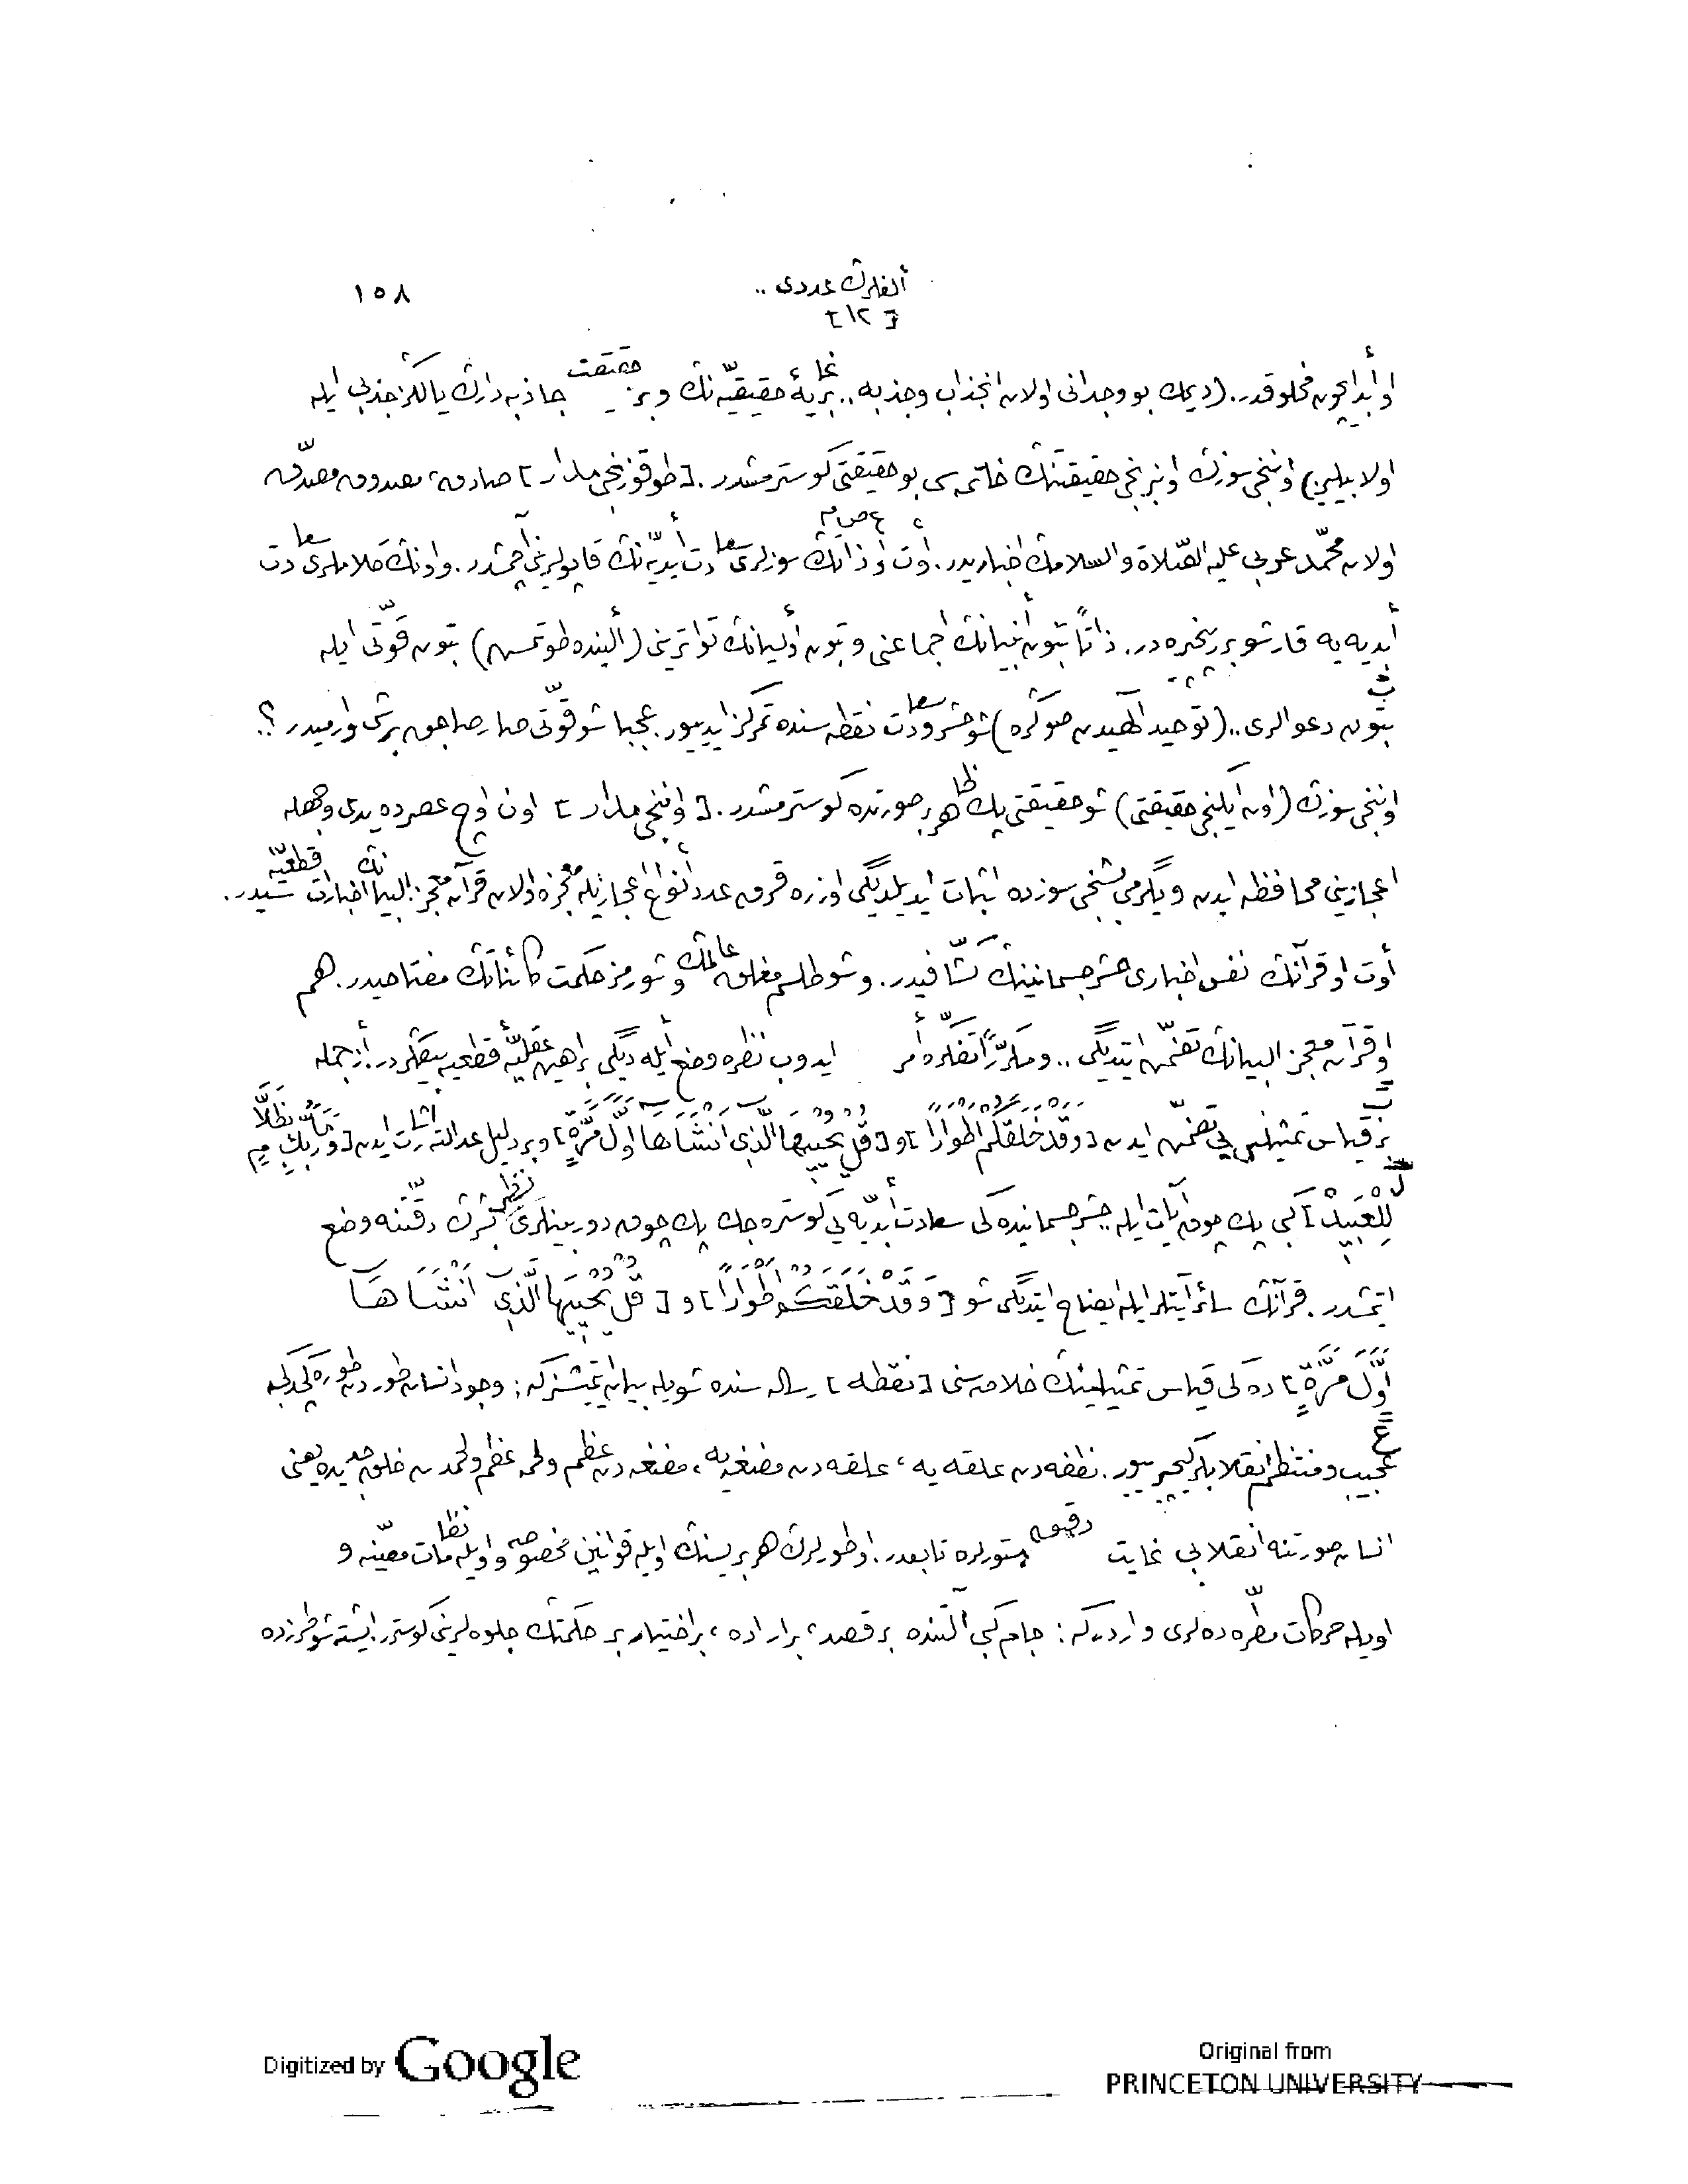 ألفلرك عددی ..
١٥٨
[ ١٢ ]
و أبد ایچون مخلوقدر. (دیمك بو وجدانی اولان انجذاب وجذبه .. بر غایۀ حقیقیّه نڭ و بر حقیقت جاذبه دارڭ یالڭز جذبی ایله
اولابیلیر) اوننجی سوزڭ اون برنجی حقیقتنڭ خاتمه سی بو حقیقتی کوسترمشدر. [طوقوزنجی مدار] صادق، مصدوق مصدّق
اولان محمّد عربی علیه الصّلاة والسلامڭ اخباریدر. أوت او ذاتڭ عصم سوزلری سعادت أبدیّه نڭ قاپولرینی آچمشدر. و اونڭ کلاملری سعادت
أبدیه یه قارشو بر پنجره در. ذاتاً بتون أنبیانڭ اجماعنی و بتون أولیانڭ تواترینی (ألینده طوتمش) بتون قوّتی ایله
بتون دعوالری .. (توحید الٰهیدن صوڭره) شو حشر و سعادت نقطه سنده تمرکز ایدییور. عجبا شو قوّتی صارصاجق بر شی وارمیدر ؟.
اوننجی سوزڭ (اون ایکنجی حقیقتی) شو حقیقتی پك ظاهر بر صورتده کوسترمشدر. [اوننجی مدار] اون اوچ عصرده یدی وجهله
اعجازینی محافظه ایدن و یگرمی بشنجی سوزده اثبات ایدیلدیگی اوزره قرق عدد أنواع اعجازیله معجزه اولان قرآن معجز البیانڭ اخبارات قطعیّه سیدر.
أوت او قرآنڭ نفس اخباری حشر جسمانینڭ کشّافیدر. و شو طلسم مغلق عالمڭ و شو رمز حکمت کائناتڭ مفتاحیدر. هم
او قرآن معجز البیانڭ تضمّن ایتدیگی .. و مکرّراً تفکّره أمر ایدوب نظره وضع أیله دیگی براهین عقلیّۀ قطعیه بیڭلردر. أزجمله
بر قیاس تمثیلی یی تضمّن ایدن [وَقَدْ خَلَقَكُمْ اَطْوَارًا] و [قُلْ يُحْيِيهَا الَّذِي اَنْشَاَهَا اَوَّلَ مَرَّةٍ] و بر دلیل عدالته اشارت ایدن [وَمَا رَبُّكَ بِظَلَّامٍ
لِلْعَبِيدِ] کبی پك چوق آیات ایله حشر جسمانیده کی سعادت أبدیّه یی کوستره جك پك چوق دوربینلری نظر بشرڭ دقّتنه وضع
ایتمشدر. قرآنڭ سائر آیتلر ایله ایضاح ایتدیگی شو [وَقَدْ خَلَقَكُمْ اَطْوَارًا] و [قُلْ يُحْيِيهَا الَّذِي اَنْشَاَهَا
اَوَّلَ مَرَّةٍ] ده کی قیاس تمثیلینڭ خلاصه سنی [نقطه] رساله سنده شویله بیان ایتمشزکه : وجود انسان طوردن طوره کچدکجه
عجیب و منتظم انقلابلر کچیرییور. نطفه دن علقه یه، علقه دن مضغه یه، مضغه دن عظم و لحمه عظم و لحمدن خلق جدیده یعنی
انسان صورتنه انقلابی غایت دقیق دستورلره تابعدر. او طورلرڭ هر بریسنڭ اویله قوانین مخصوصه و اویله نظامات معیّنه و
اویله حرکات مطّرده لری واردرکه : جام کبی آلتنده بر قصد، بر اراده، بر اختیار بر حکمتڭ جلوه لرینی کوسترر. ایشته شو طرزده
Digitized by Google
Original from
PRINCETON UNIVERSITY